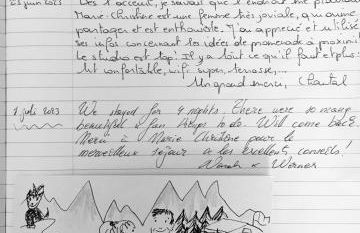 23 juin 2023 Dès l'acceuil, je savais que l'endroit me
Marie-Christine est une femme très joviale, qui aime
partager et est enthousiaste. J'ai apprécié et utilisé
ses infos concernant les idées de promenade à proximité
Le studio est top. Il y a tout ce qu'il faut et plus:
lit confortable, wifi super, terrasse,...
Un grand merci, Chantal
1 juli 2023 We stayed for 4 nights. There were so many
beautiful & fun things to do. Will come back
Merci à Marie Christine pour le
merveilleux séjour & les excellents conseils!
& Werner